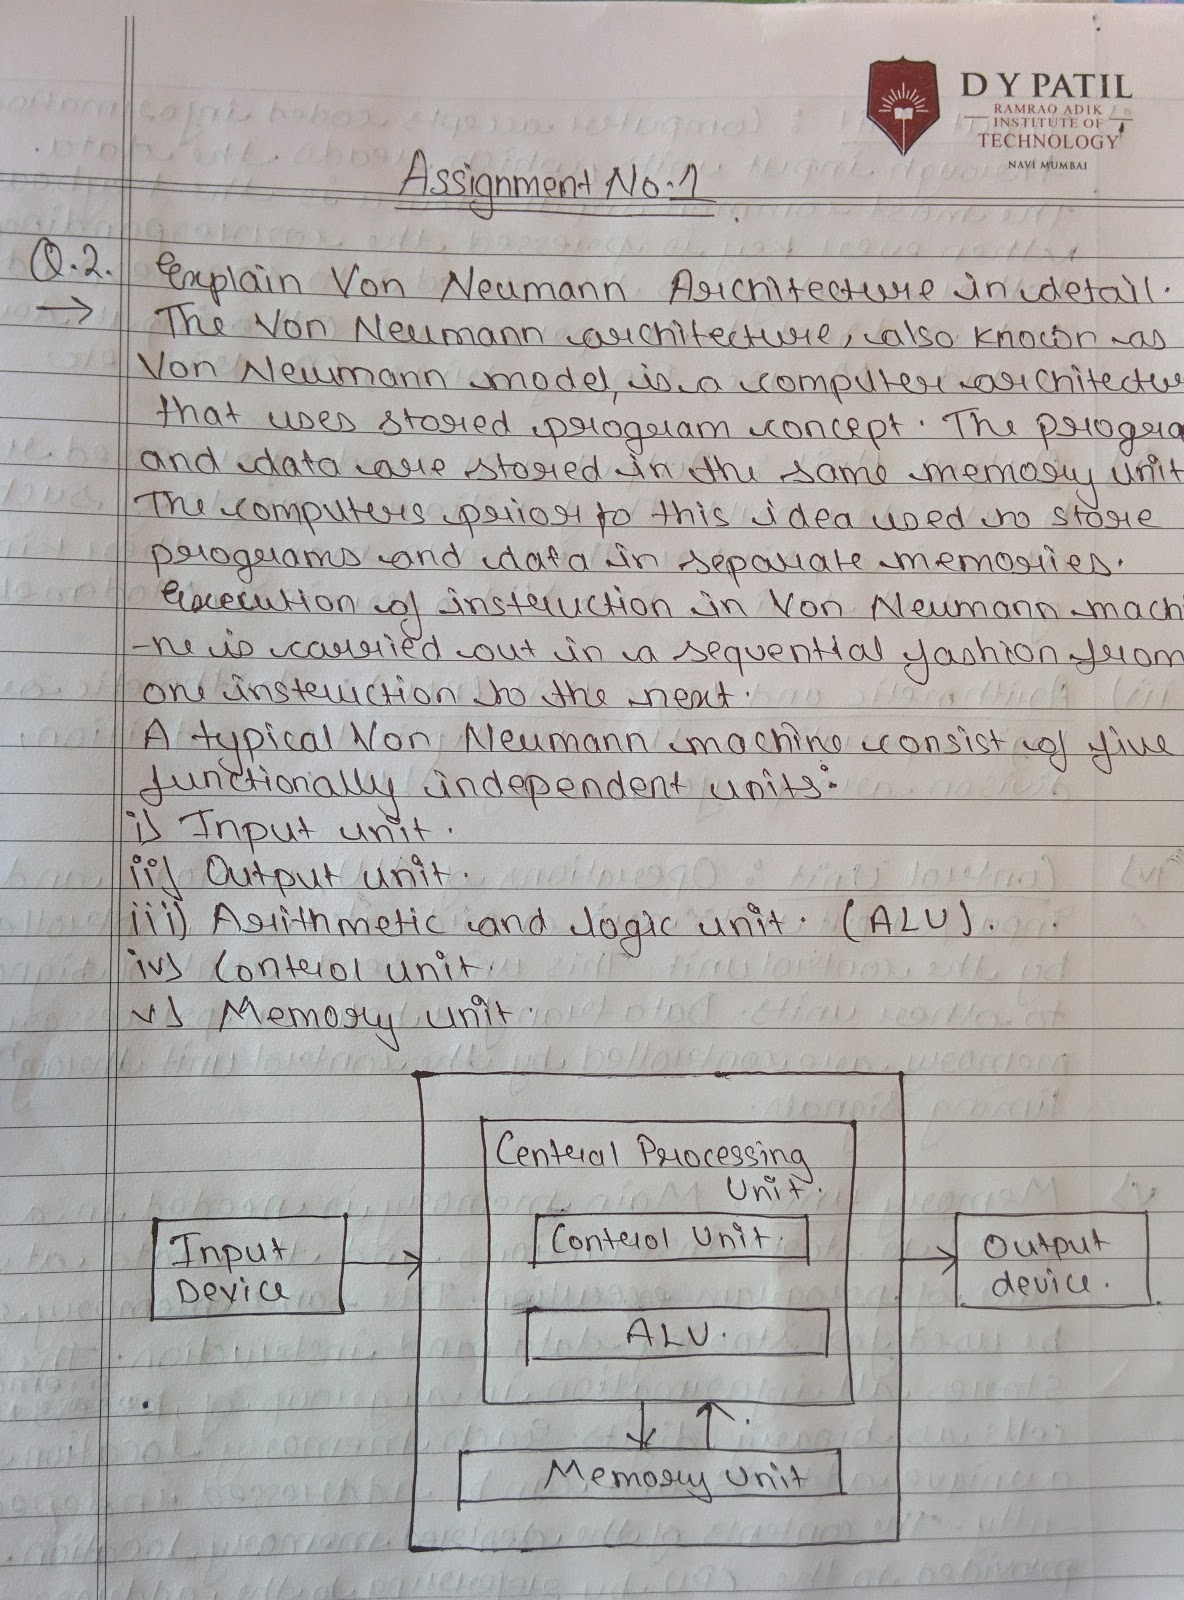 D Y PATIL
RAMRAO ADIK
INSTITUTE OF
TECHNOLOGY
NAVI MUMBAI
Assignment No.1
Q.2. Explain Von Neumann Architecture in detail.
→ The Von Neumann architecture, also known as
Von Neumann model, is a computer architectu
that uses stored program concept. The progra
and data are stored in the same memory unit
The computers prior to this idea used to store
programs and data in separate memories.
Execution of instruction in Von Neumann machi
-ne is carried out in a sequential fashion from
one instruction to the next.
A typical Von Neumann machine consist of five
functionally independent units:
i) Input unit.
ii) Output unit.
iii) Arithmetic and logic unit. (ALU).
iv) Control unit.
v) Memory unit.
Central Processing
Unit.
Input
Device
Control Unit.
Output
device.
ALU.
Memory Unit